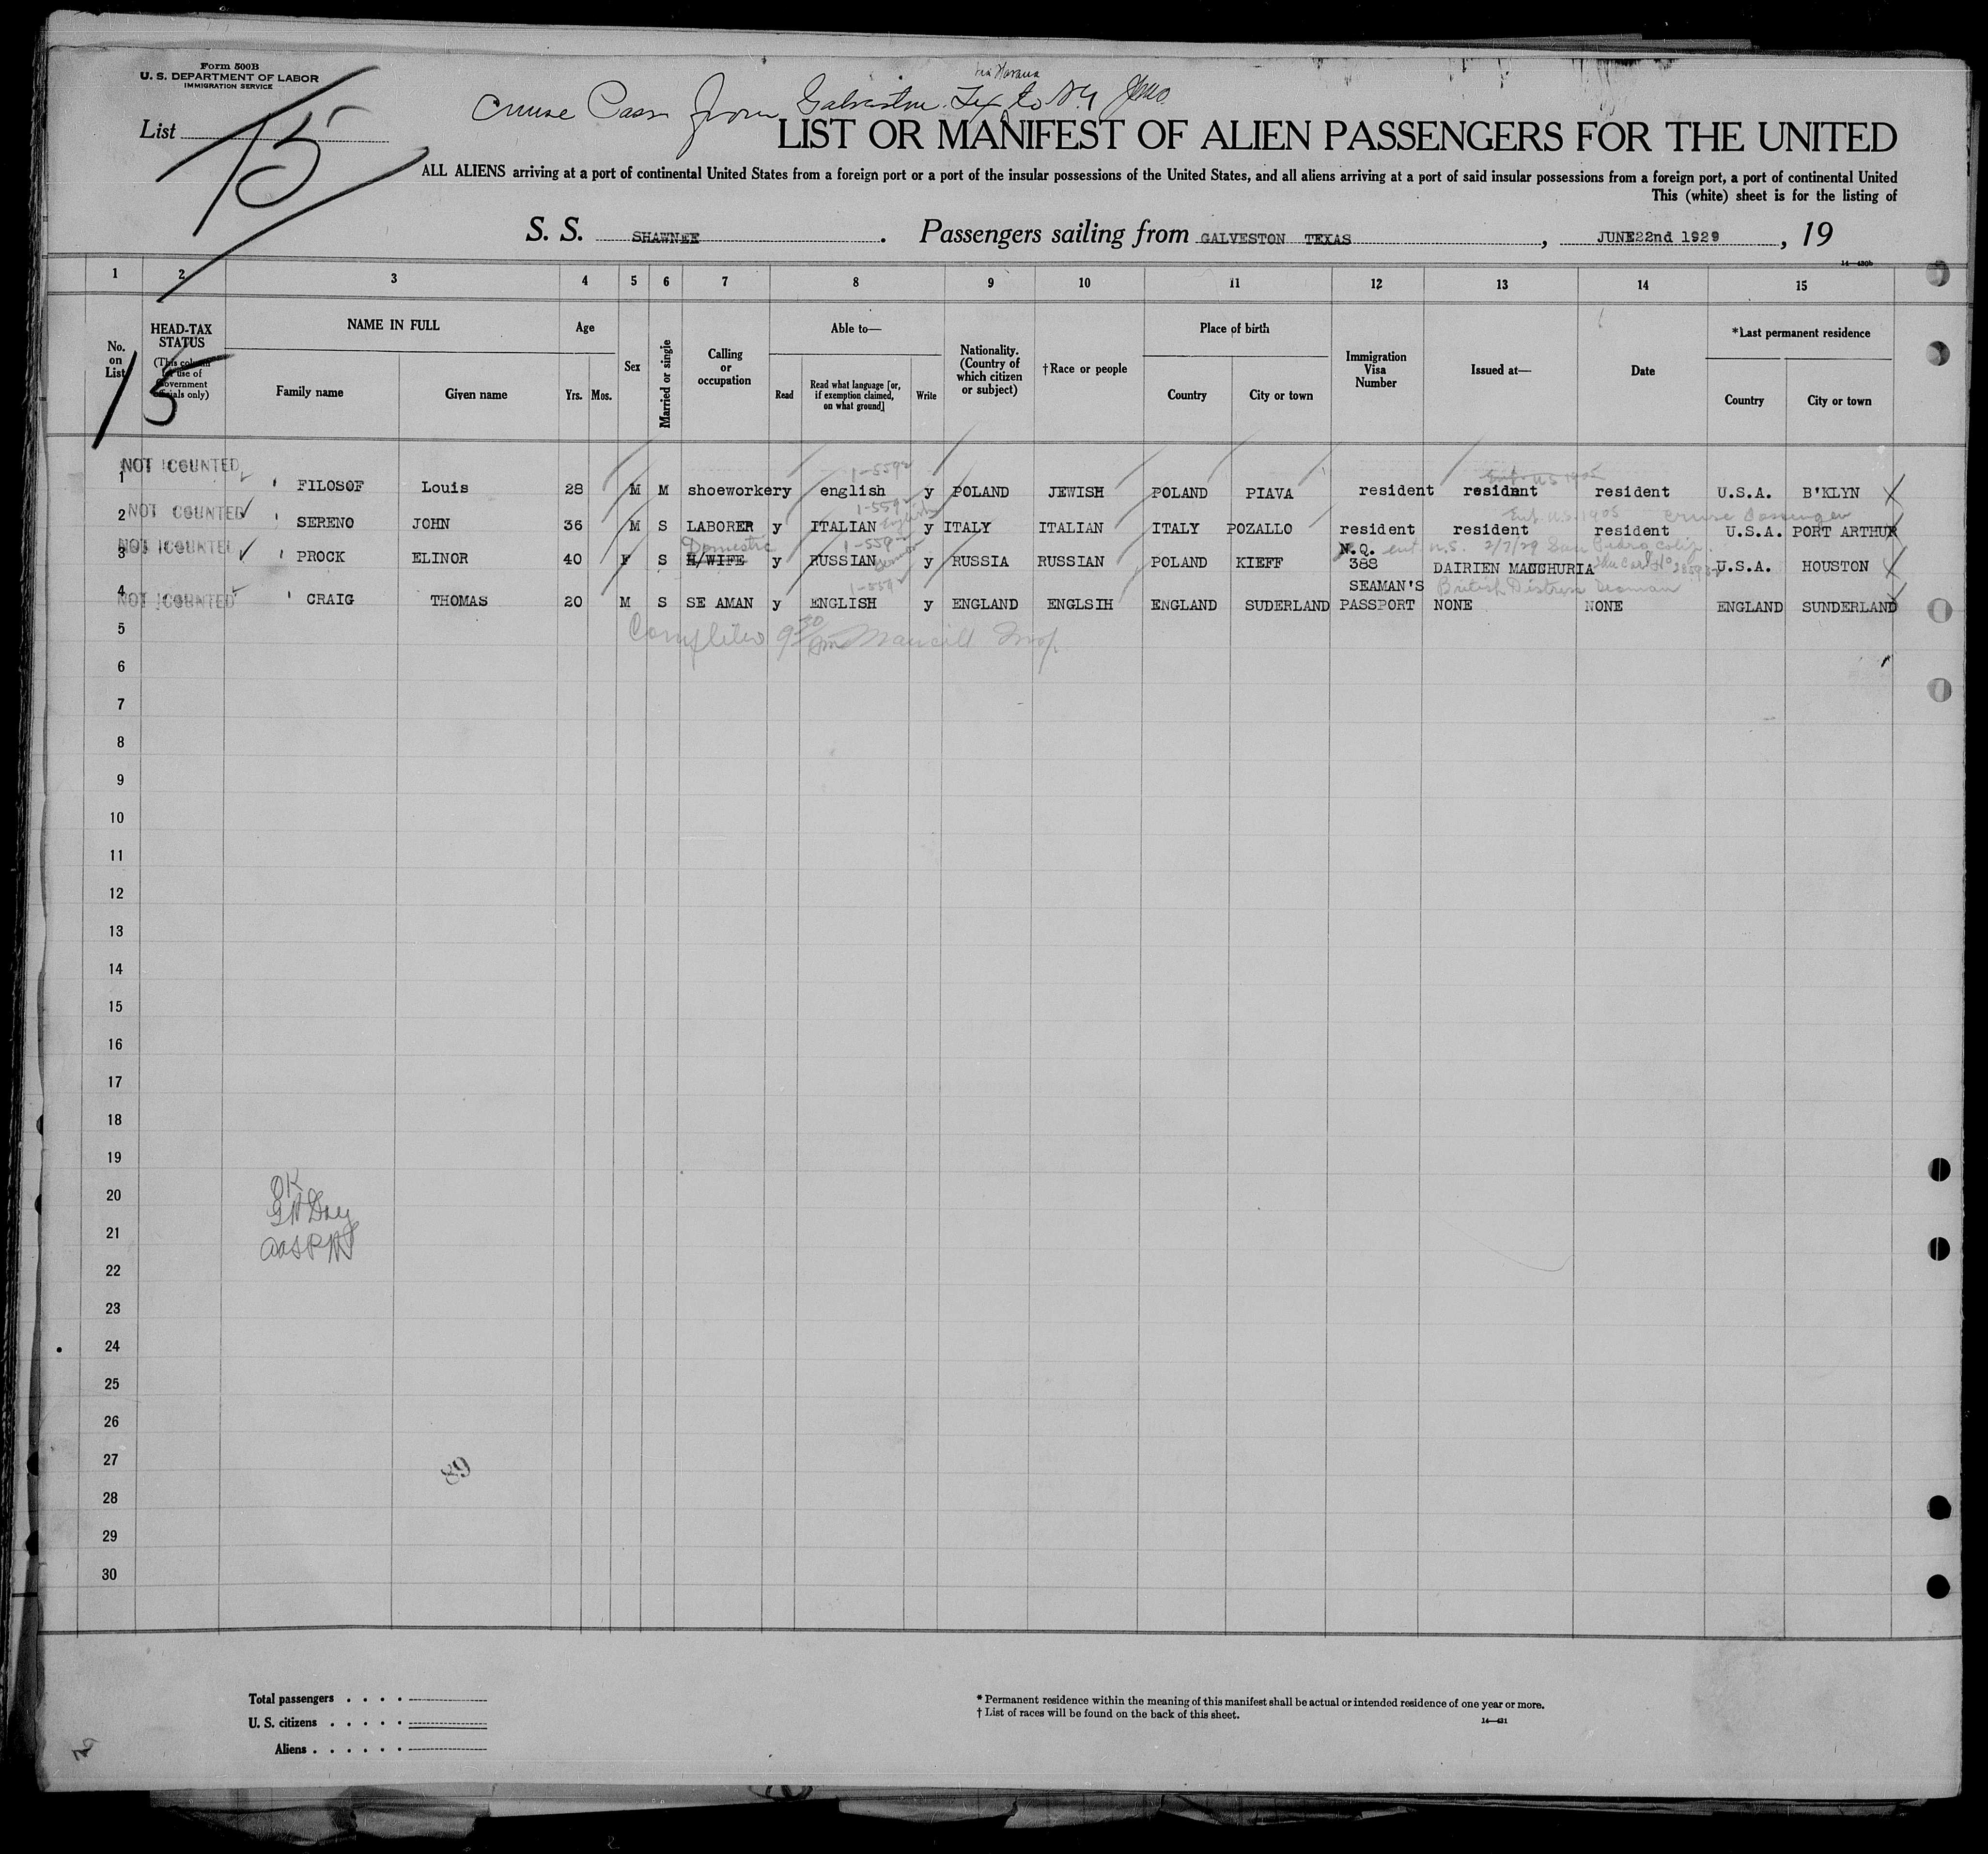 Form 500B
U. S. DEPARTMENT OF LABOR
IMMIGRATION SERVICE
List
15
via Havana
Cruise Pass from Galveston. Tex to N.Y.
LIST OR MANIFEST OF ALIEN PASSENGERS FOR THE UNITED
ALL ALIENS arriving at a port of continental United States from a foreign port or a port of the insular possessions of the United States, and all aliens arriving at a port of said insular possessions from a foreign port, a port of continental United
This (white) sheet is for the listing of
S. S. SHAWNEE . Passengers sailing from GALVESTON TEXAS , JUNE22nd 1929 , 19
14—430b
1 2 3 4 5 6 7 8 9 10 11 12 13 14 15
No. on List
HEAD-TAX STATUS
(This column for use of Government officials only)
NAME IN FULL
Family name Given name
Age
Yrs. Mos.
Sex
Married or single
Calling or occupation
Able to—
Read
Read what language [or, if exemption claimed, on what ground]
Write
Nationality. (Country of which citizen or subject)
†Race or people
Place of birth
Country City or town
Immigration Visa Number
Issued at—
Date
*Last permanent residence
Country City or town
15
NOT COUNTED
1-559
Ent. U.S 1905
1 FILOSOF Louis 28 M M shoeworkery english y POLAND JEWISH POLAND PIAVA resident resident resident U.S.A. B'KLYN
NOT COUNTED
1-559
English
Ent. U.S. 1905 Cruise Passenger
2 SERENO JOHN 36 M S LABORER y ITALIAN y ITALY ITALIAN ITALY POZALLO resident resident resident U.S.A. PORT ARTHUR
NOT COUNTED
Domestic
1-559
German
N.Q. ent U.S. 2/7/29 San Pedro Calif.
3 PROCK ELINOR 40 F S H/WIFE y RUSSIAN y RUSSIA RUSSIAN POLAND KIEFF 388 DAIRIEN MANCHURIA U.S.A. HOUSTON
NOT COUNTED
1-559
SEAMAN'S British Distress Seaman
4 CRAIG THOMAS 20 M S SE AMAN y ENGLISH y ENGLAND ENGLSIH ENGLAND SUDERLAND PASSPORT NONE NONE ENGLAND SUNDERLAND
5
Completed 9 30 am Insp.
6
7
8
9
10
11
12
13
14
15
16
17
18
19
20
OK
21
22
23
24
25
26
27
89
28
29
30
Total passengers . . . .
U. S. citizens . . . . .
Aliens . . . . . .
* Permanent residence within the meaning of this manifest shall be actual or intended residence of one year or more.
† List of races will be found on the back of this sheet.
14—431